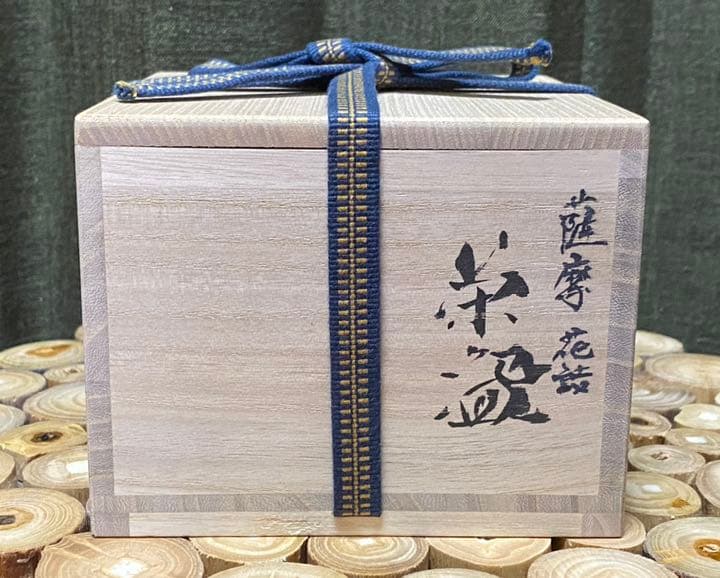 薩摩 花詰
茶盌